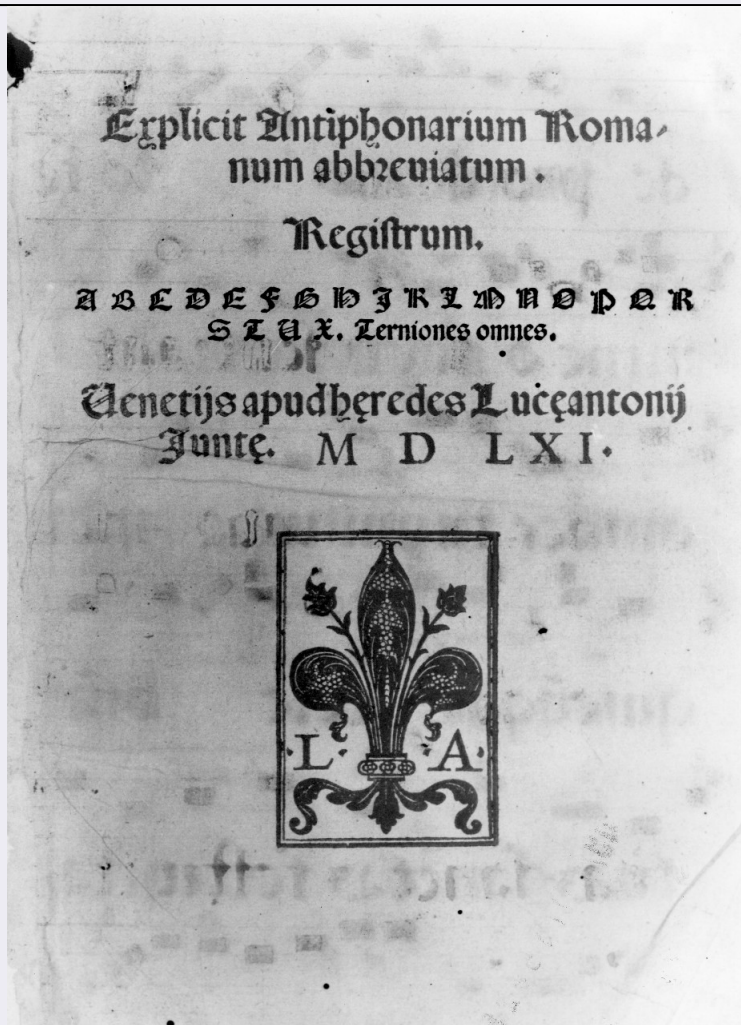 Explicit Antiphonarium Roma-
num abbreuiatum.
Registrum.
A B C D E F G H I K L M N O P Q R
S T U X. Terniones omnes.
Uenetijs apud hęredes Lucęantonij
Juntę. M D LXI.
L A